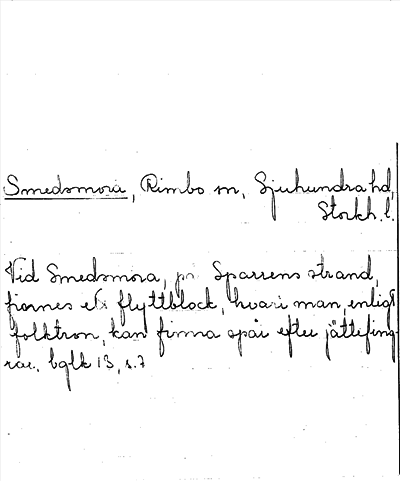 Smedsmora, Rimbo sn, Sjuhundra hd,
Storkh. l.
Vid Smedsmora, på Sparrens strand,
finnes ett flyttblock, hvari man, enligt
folktron, kan finna spår efter jättefing-
rar. bglk 13, s. 7